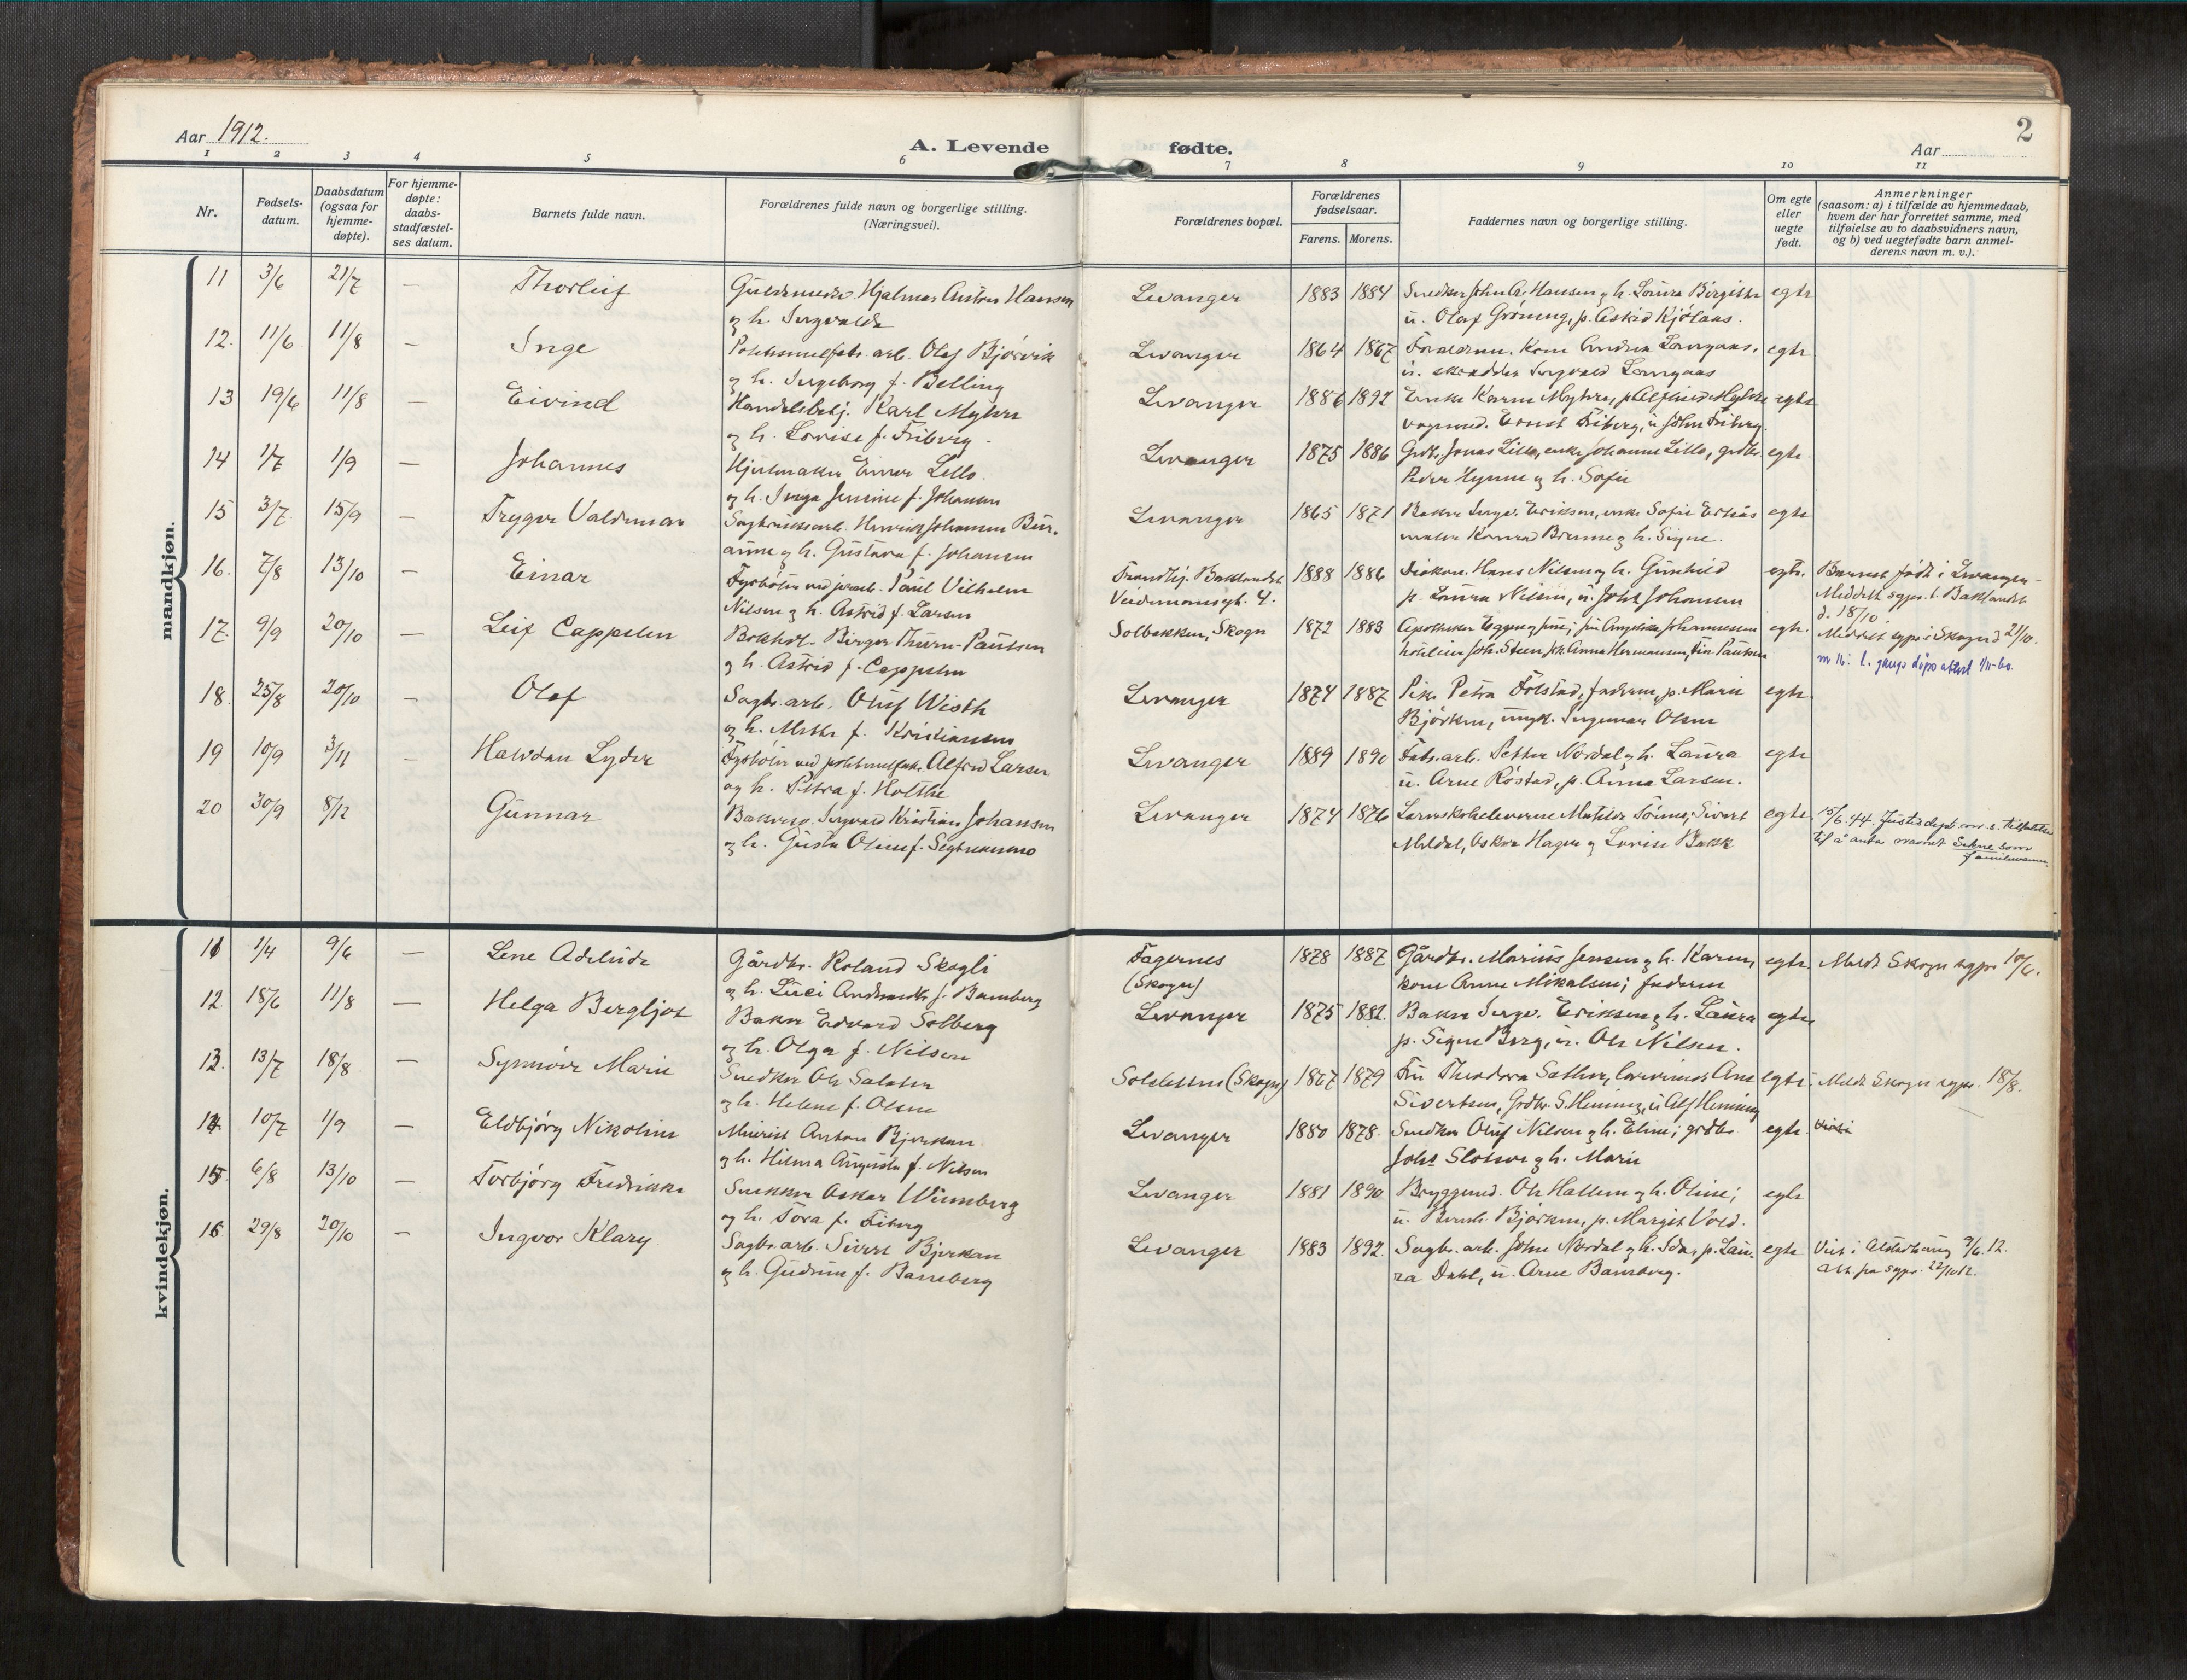 Aar 1912.
A. Levende fødte.
2
Aar
1 2 3 4 5 6 7 8 9 10 11
Nr.
Fødsels-
datum.
Daabsdatum
(ogsaa for
hjemme-
døpte).
For hjemme-
døpte:
daabs-
stadfæstel-
ses datum.
Barnets fulde navn.
Forældrenes fulde navn og borgerlige stilling.
(Næringsvei).
Forældrenes bopæl.
Forældrenes
fødselsaar.
Farens. Morens.
Faddernes navn og borgerlige stilling.
Om egte
eller
uegte
født.
Anmerkninger
(saasom: a) i tilfælde av hjemmedaab,
hvem der har forrettet samme, med
tilføielse av to daabsvidners navn,
og b) ved uegtefødte barn anmel-
derens navn m. v.).
mandkjøn.
11 3/6 21/7 — Thorleif Guldsmed Hjalmar Anton Hansen Levanger 1883 1884 Snedker John A. Hansen og h. Laura Birgitte egte
og h. Ingvalda u. Olaf Gröning, p. Astrid Kjölaas.
12. 11/6 11/8 — Inge arb. Olaf Bjørvik Levanger 1864 1867 Forældrene. Kone Andrea Langaas, egte
og h. Ingeborg f. Belling u. skrædder Ingvald Langaas
13 19/6 11/8 — Eivind Handelsbetj. Karl Myhre Levanger 1886 1892 Enke Karen Myhre, p. Alfhild Myhre egte
og h. Lovise f. Friberg. vognmd. Ernst Friberg, u. John Friberg.
14 1/7 1/9 — Johannes Hjulmaker Einar Lillo. Levanger 1875 1886 Grdbr. Jonas Lillo, enke Johanne Lillo, grdbr. egte.
og h. Inga Jensine f. Johansen Peder Hynne og h. Sofie
15 3/7 15/9 — Trygve Valdemar Sagbruksarb. Henrik Johansen Bur- Levanger 1865 1871 Baker Ingv. Eriksen, enke Sofie egte
aune og h. Gustava f. Johansen maler Konrad Brenne og h. Signe.
16. 7/8 13/10 — Einar Fyrbøter ved Paul Vilhelm Trondhj. Baklandet 1888 1886 Diakon Hans Nilsen og h. Gunhild egte. Barnet født i Levanger-
Nilsen og h. Astrid f. Larsen Veidemansgt. 4. p. Laura Nilsen, u. Johs Johansen Meddelt sgpr. i Baklandet
d. 18/10.
17. 9/9 20/10 — Leif Cappelen Bokhol. Birger Thurn-Paulsen Solbakken, Skogn 1872 1883 Apotheker Eggen og frue; frk Angelica Johannessen egte. Meddelt sgpr i Skogn d 21/10.
og h. Astrid f. Cappelen Joh. Steen frk Anna Hermansen, Fin Paulsen nr 16: 1. gangs dåpsattest 1/11-60.
18. 25/8 20/10 — Olaf Sagbr. arb. Oluf Wisth Levanger 1874 1887 Pike Petra Folstad, faderen, p. Marie egte
og h. Mette f. Kristiansen Bjørken, ungk. Ingemar Olsen
19 10/9 3/11 — Halvdan Lyder Fyrbøter ved Alfred Larsen Levanger 1889 1890 Fabr. arb. Petter Nordal og h. Laura egte
og h. Petra f. Holthe u. Arne Röstad, p. Anna Larsen.
20 30/9 8/12 Gunnar Ingvald Kristian Johansen Levanger 1874 1876 Lærerskoleeleverne Matilde Tönne, Sivert egte 15/6.44. Justisdept. till.
og h. Gusta Oline f. Segtnanmo Meldal, Oskar Hagen og Lovise Bakk til å anta navnet Sekne som
familienavn.
kvindekjøn.
11 1/4 9/6 — Lene Adelheide Gårdbr. Roland Skogli Fagernes 1878 1887 Gårdbr. Marius Jensen og h. Karen, egte Meldt Skogn sgpr 10/6.
og h. Luci f. Bamberg (Skogn) kone Anne Mikalsen; faderen
12. 18/6 11/8 — Helga Bergljot Baker Edvard Solberg Levanger 1875 1882. Baker Ingv. Eriksen og h. Laura egte
og h. Olga f. Nilsen p. Signe Berg, u. Ole Nilsen.
13. 13/7 18/8 — Synnöve Marie Snedker Ole Salater Solsletten (Skogn) 1867 1879 Fru Theodora Sæther, Ane egte. Meldt Skogn sgpr. 18/8.
og h. Helene f. Olsen Sivertsen, Grdbr. S. Heming, u Alf Heming
14. 10/7 1/9 — Eldbjørg Nikoline Murer Anton Bjerkan Levanger 1880 1878. Snedker Oluf Nilsen og h. Eline; grdbr egte.
og h. Hilma Augusta f. Nilsen Johs Slotsve og h. Marie
15. 6/8 13/10 — Torbjørg Fredrikke Snekker Oskar Wennberg Levanger 1881 1890 Bryggemd. Ole Hallem og h. Oline; egte
og h. Tora f. Friberg u. Bernh. Bjørken, p. Margit Vold.
16. 29/8 20/10 — Ingvor Klary Sagbr. arb. Sivert Bjerkan Levanger 1883 1892. Sagbr. arb. John Nordal og h. Ida, p. Lau- egte Viet i Alstadhaug 9/6.12.
og h. Gudrun f. Bamberg ra Dahl, u. Arne Bamberg. Att. fra sgpr. 22/10.12.